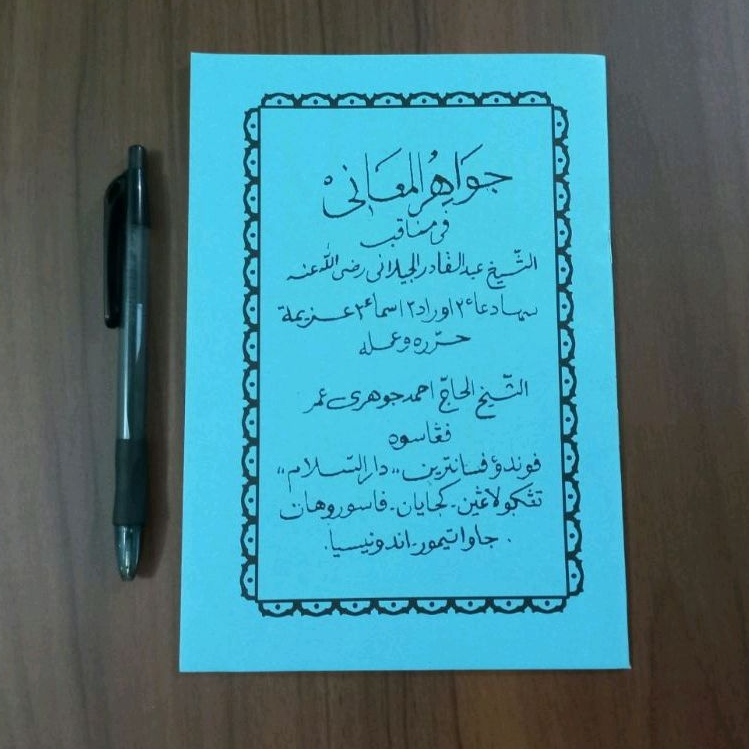 جَوَاهِرُ المَعَانِى
فى مناقب
الشّيخ عبد القادر الجيلانى رضى الله عنه
سرتا دعاء٢ اوراد٢ اسماء٢ عزيمة
حرّره وعمله
الشّيخ الحاجّ احمد جوهرى عمر
فڠاسوه
فوندؤ فسانترين ,,دار السّلام,,
تڠݢولاڠين - كجايان - فاسوروهان
. جاوا تيمور - اندونيسيا .